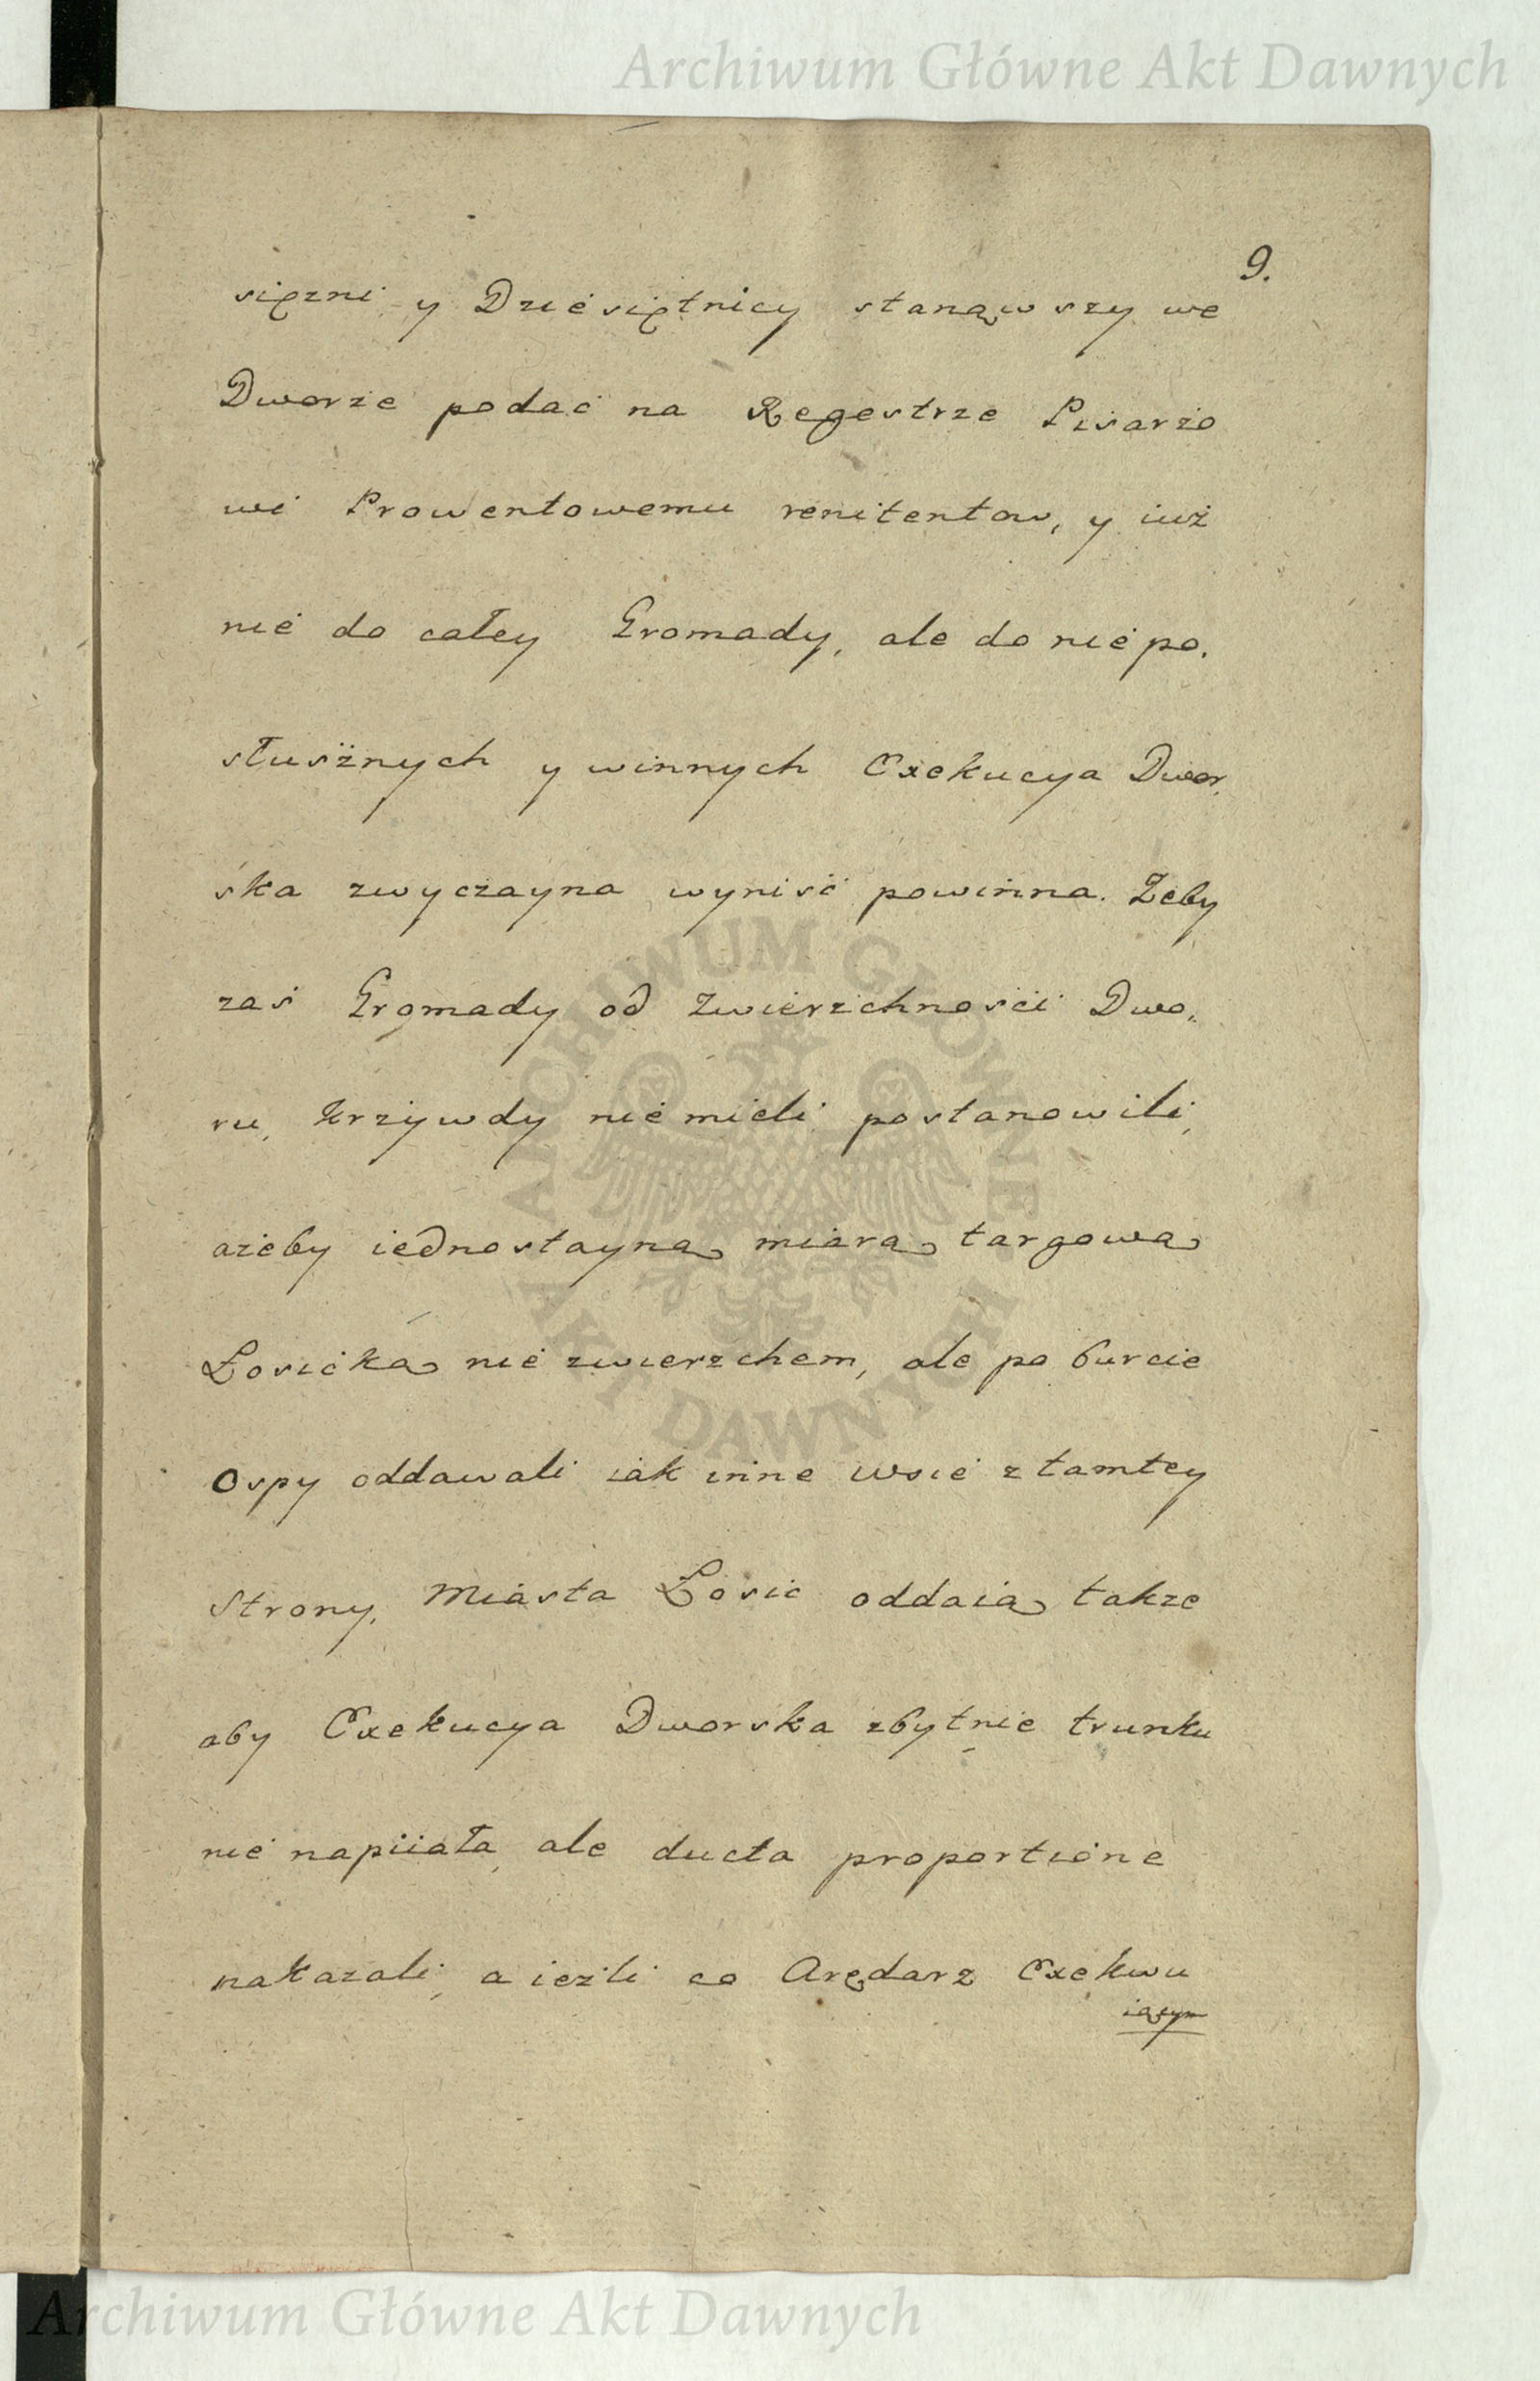 Archiwum Główne Akt Dawnych
9.
siężni y Dziesiętnicy stanąwszy we
Dworze podać na Regestrze Pisarzo
wi Prowentowemu renitentow, y iuż
nie do całey Gromady, ale do niepo,
słusznych y winnych Exekucya Dwor,
ska zwyczayna wyniść powinna. Żeby
zaś Gromady od Zwierzchności Dwo,
ru, krzywdy nie mieli postanowili,
ażeby iednostayną miarą targową
Łosicką nie zwierzchem, ale po burcie
Ospy oddawali iak inne wsie z tamtey
Strony, Miasta Łosic oddaią także
aby Exekucya Dworska zbytnie trunku
nie napiiała, ale ducta proportione
nakazali, a ieżli co Arędarz Exekwu
iącym
ARCHIWUM GŁÓWNE AKT DAWNYCH
Archiwum Główne Akt Dawnych